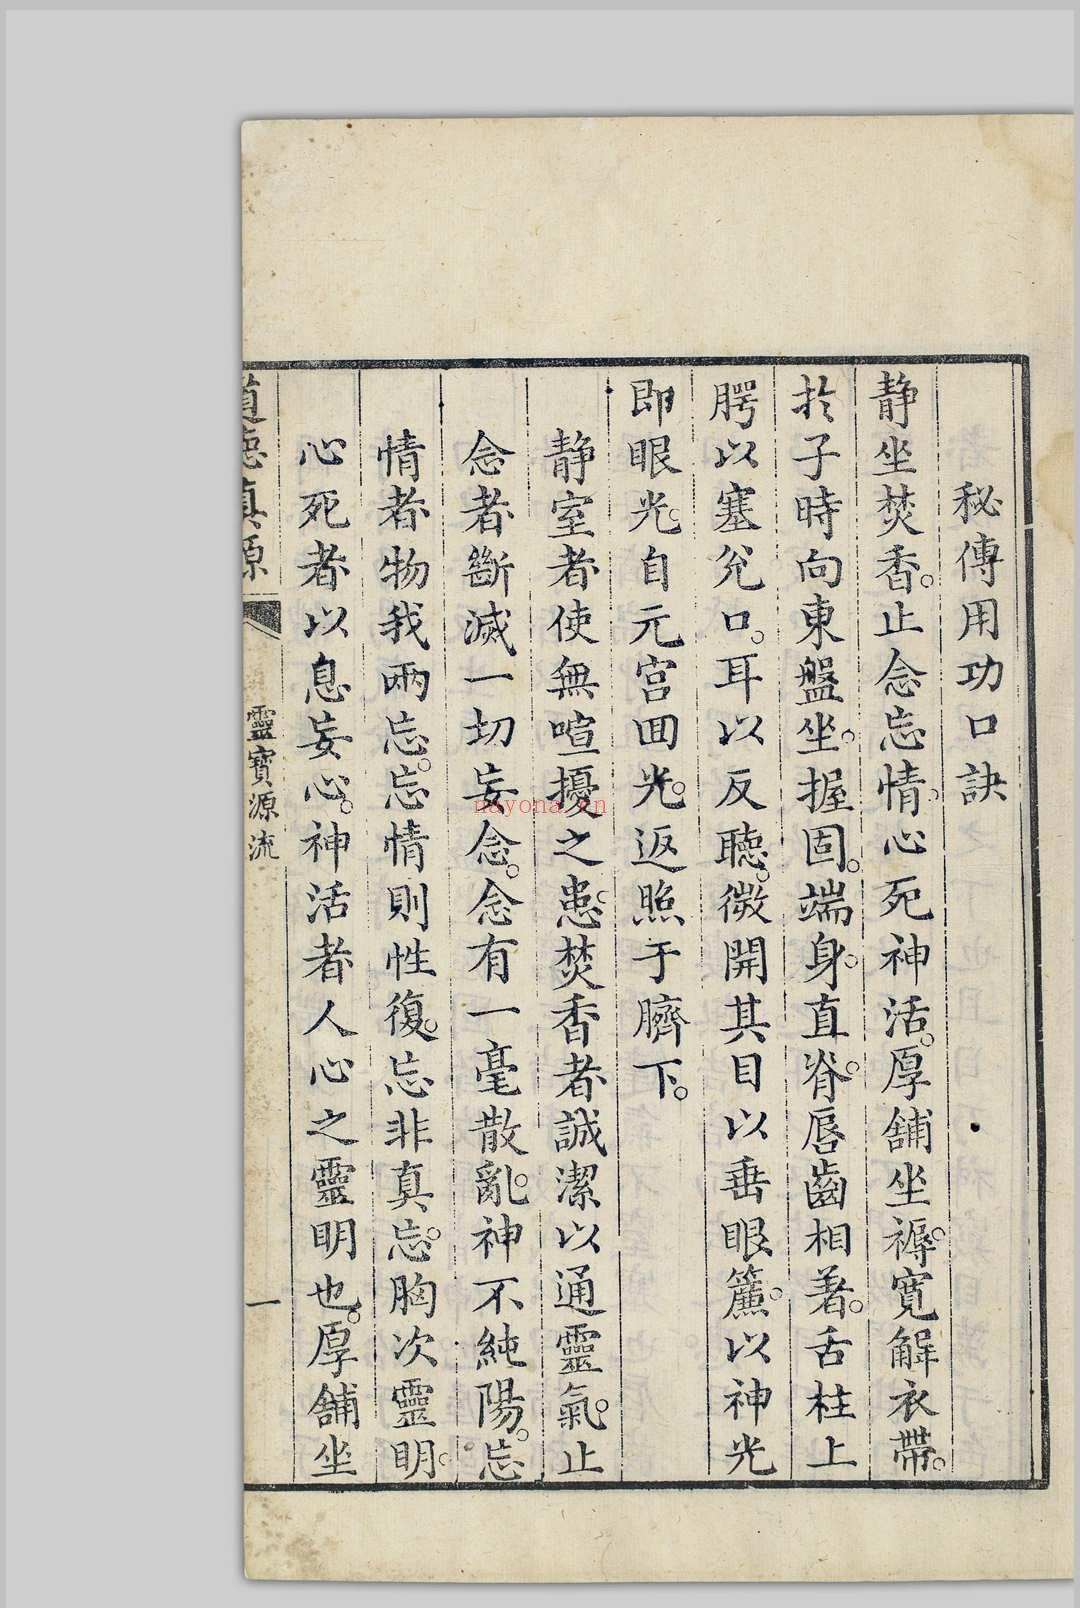 秘傳用功口訣
静坐焚香。止念忘情。心死神活。厚舖坐褥。寬解衣帶。
扵子時向東盤坐。握固。端身。直脊。唇齒相着。舌柱上
腭以塞兊口。耳以反聽。微開其目以垂眼簾。以神光
即眼光。自元宫囬光。返照于臍下。
静室者使無喧擾之患。焚香者誠潔以通靈氣。止
念者斷滅一切妄念。念有一毫散亂。神不純陽。忘
情者物我兩忘。忘情則性復。忘非真忘。胸次靈明。
心死者以息妄心。神活者人心之靈明也。厚舖坐
道德真源
靈寶源流
一
nayona.cn